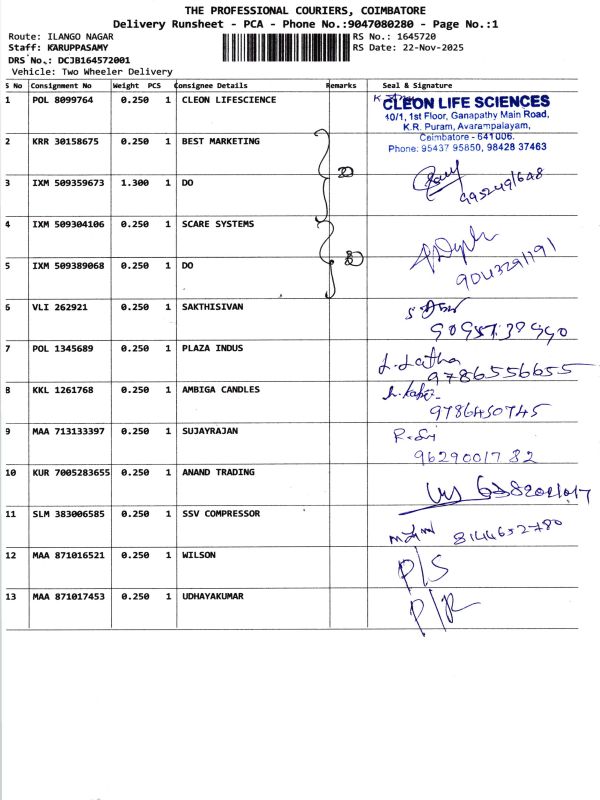 THE PROFESSIONAL COURIERS, COIMBATORE
Delivery Runsheet - PCA - Phone No.:9047080280 - Page No.:1
Route: ILANGO NAGAR RS No.: 1645720
Staff: KARUPPASAMY RS Date: 22-Nov-2025
DRS No.: DCJB164572001
Vehicle: Two Wheeler Delivery
S No Consignment No Weight PCS Consignee Details Remarks Seal & Signature
1 POL 8099764 0.250 1 CLEON LIFESCIENCE
CLEON LIFE SCIENCES
40/1, 1st Floor, Ganapathy Main Road,
K.R. Puram, Avarampalayam,
Coimbatore - 641006.
Phone: 95437 95850, 98428 37463
2 KRR 30158675 0.250 1 BEST MARKETING
3 IXM 509359673 1.300 1 DO
4 IXM 509304106 0.250 1 SCARE SYSTEMS
5 IXM 509389068 0.250 1 DO 9043291191
6 VLI 262921 0.250 1 SAKTHISIVAN
7 POL 1345689 0.250 1 PLAZA INDUS L. Latha
9786556655
8 KKL 1261768 0.250 1 AMBIGA CANDLES
9786450745
9 MAA 713133397 0.250 1 SUJAYRAJAN R. Sri
9629001782
10 KUR 7005283655 0.250 1 ANAND TRADING
11 SLM 383006585 0.250 1 SSV COMPRESSOR 8144652780
12 MAA 871016521 0.250 1 WILSON P/S
13 MAA 871017453 0.250 1 UDHAYAKUMAR P/R